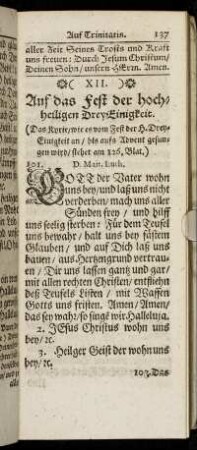 Auf Trinitatis. 137
aller Zeit Seines Trosts und Kraft
uns freuen: Durch Jesum Christum/
Deinen Sohn/ unsern HErrn. Amen.
( XII. )
Auf das Fest der hoch-
heiligen DreyEinigkeit.
(Das Kyrie/wie es vom Fest der H. Drey-
Einigkeit an / bis aufs Advent gesun-
gen wird/ siehet am 126. Blat.)
102. D. Mart. Luth.
GOTT der Vater wohn
uns bey/ und laß uns nicht
verderben/ mach uns aller
Sünden frey / und hilff
uns seelig sterben: Für dem Teufel
uns bewahr/ halt uns bey fästem
Glauben/ und auf Dich laß uns
bauen/ aus Hertzengrund vertrau-
en/ Dir uns lassen gantz und gar/
mit allen rechten Christen/ entfliehen
deß Teufels Listen / mit Waffen
Gotts uns fristen. Amen/ Amen/
das sey wahr/ so singe wir Halleluja.
2. JEsus Christus wohn uns
bey/ ꝛc.
3. Heilger Geist der wohn uns
bey/ ꝛc.
103. Das